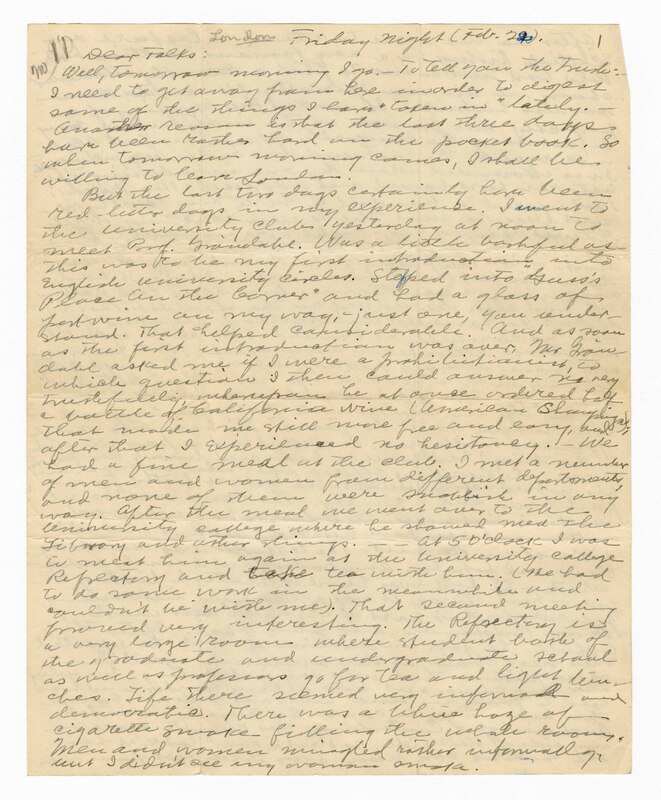 London Friday Night (Feb. 2).
1
Dear Folks:
Well, tomorrow morning I go. – To tell you the truth:
I need to get away from here in order to digest
some of the things I have "taken in" lately. –
Another reason is that the last three days
have been rather hard on the pocket book. So
when tomorrow morning comes, I shall be
willing to leave London.
But the last two days certainly have been
red-letter days in my experience. I went to
the University Club yesterday at noon to
meet Prof. Grondahl. Was a little bashful as
this was to be my first introduction into
English university circles. Stepped into
Place On the Corner" and had a glass of
port wine on my way, – just one, you under-
stand. That helped considerable. And as soon
as the first introduction was over, Mr. Gron-
dahl asked me if I were a prohibitionist, to
which question I then could answer no very
truthfully, whereupon he at once ordered half
a bottle of California wine (American
that made me still more free and easy, and
after that I experienced no hesitancy. – We
had a fine meal at the club, I met a number
of men and women from different departments,
and none of them were snobbish in any
way. After the meal we went over to the
University College where he showed me the
Library and other things. — At 5 O'clock I was
to meet him again at the University College
Refectory and take tea with him. (He had
to do some work in the meanwhile and
couldn't be with me). That second meeting
proved very interesting. The Refectory is
a very large room where student both of
the graduate and undergraduate school
as well as professors go for tea and light lun-
ches. Life there seemed very informal and
democratic. There was a blue haze of
cigarette smoke filling the whole room.
Men and women mingled rather informally,
but I didn't see any woman smoke.